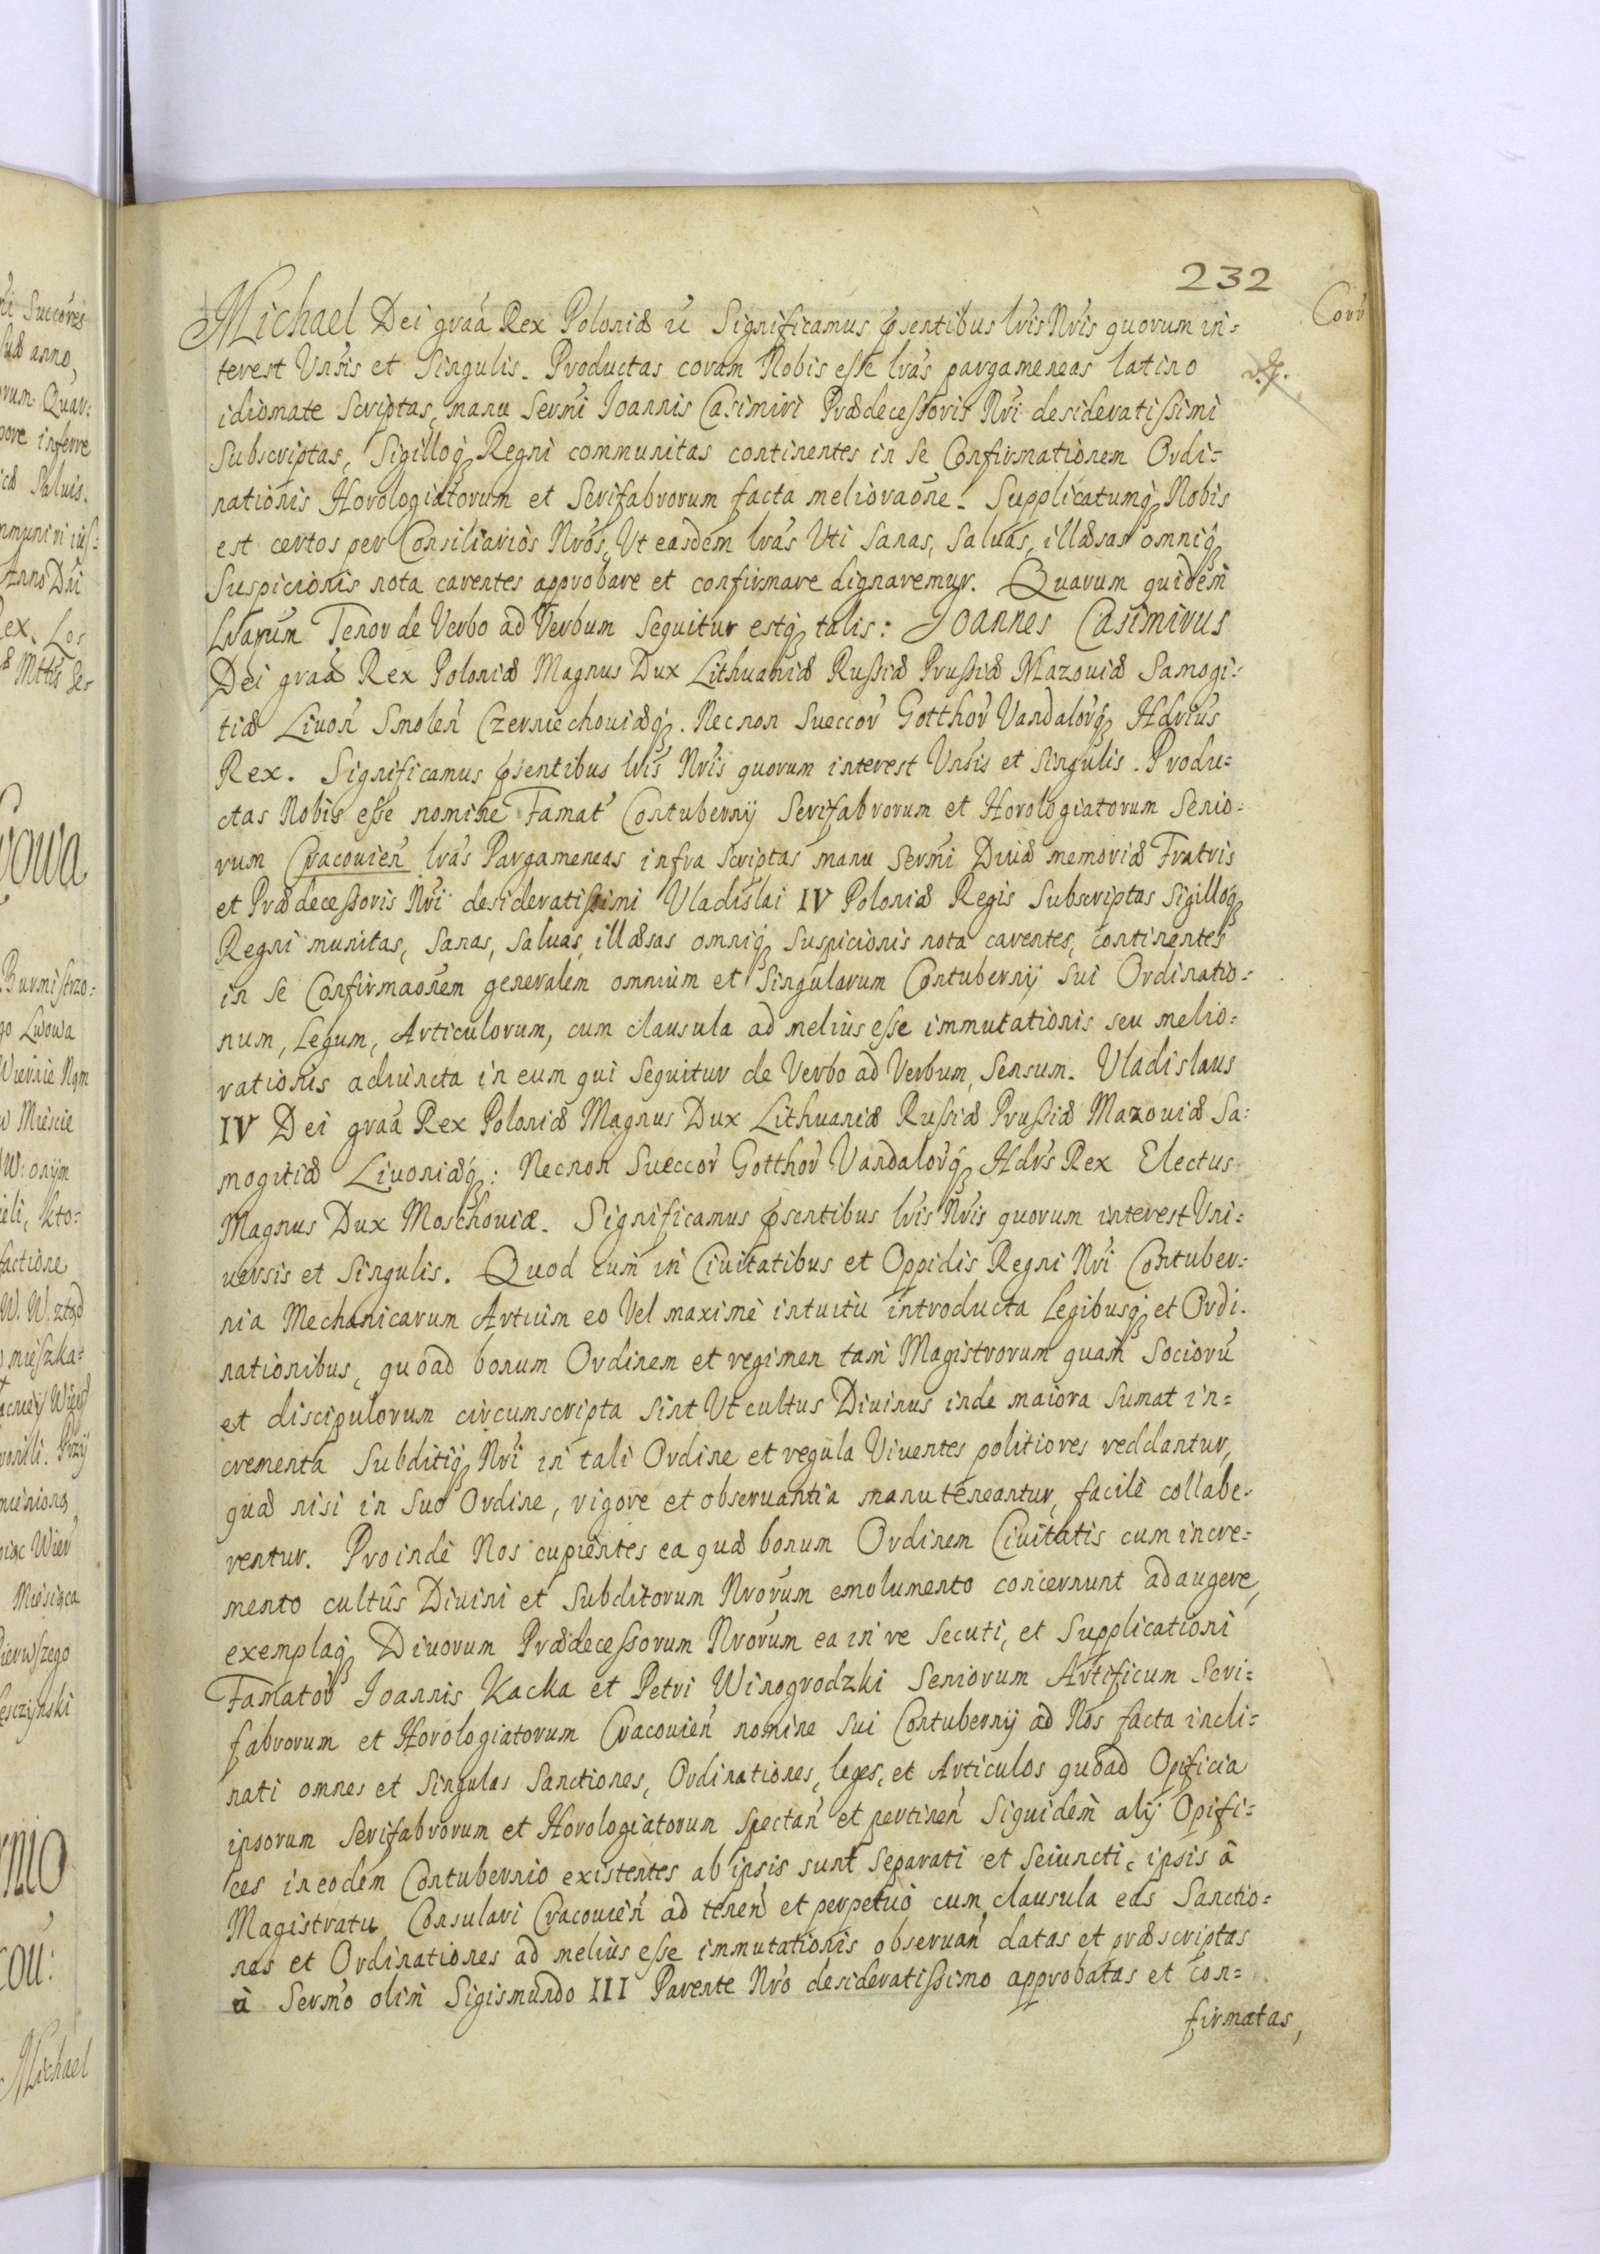 232
Corr
Michael Dei graã Rex Poloniæ Significamus pñsentibus lris Nris quorum in=
terest Vnsis et Singulis. Productas coram Nobis esse lras pargameneas latino
idiomate Scriptas, manu Sermi Joannis Casimiri Prædecessoris Nri desideratissimi
Subscriptas, Sigilloq; Regni communitas continentes in Se Confirmationem Ordi=
nationis Horologiatorum et Serifabrorum facta melioraone. Supplicatumq; Nobis
est certos per Consiliarios Nros, Ut easdem lras Uti Sanas, Saluas, illæsas omniq;
Suspicionis nota carentes approbare et confirmare dignaremur. Quarum quidem
Lrarum Tenor de Verbo ad Verbum Sequitur estq; talis: Joannes Casimirus
Dei graã Rex Poloniæ Magnus Dux Lithuaniæ Russiæ Prussiæ Mazouiæ Samogi=
tiæ Liuon̄ Smolen̄ Czerniechouiæq;. Necnon Sueccor̄ Gotthor̄ Vandalor̄q; Hdrius
Rex. Significamus pñsentibus lris Nris quorum interest Vnsis et Singulis. Produ=
ctas Nobis esse nomine Famat̄ Contubernij Serifabrorum et Horologiatorum Senio=
rum Cracouien̄ lras Pargameneas infra Scriptas manu Sermi Diuæ memoriæ Fratris
et Prædecessoris Nri desideratissimi Vladislai IV Poloniæ Regis Subscriptas Sigilloq;
Regni munitas, Sanas, Saluas, illæsas omniq; Suspicionis nota carentes, continentes
in Se Confirmaonem generalem omnium et Singularum Contubernij Sui Ordinatio=
num, Legum, Articulorum, cum clausula ad melius esse immutationis seu melio=
rationis adiuncta in eum qui Sequitur de Verbo ad Verbum, Sensum. Vladislaus
IV Dei graã Rex Poloniæ Magnus Dux Lithuaniæ Russiæ Prussiæ Mazouiæ Sa=
mogitiæ Liuoniæq;: Necnon Sueccor̄ Gotthor̄ Vandalor̄q; Hdrs Rex Electus
Magnus Dux Moschouiæ. Significamus pñsentibus lris Nris quorum interest Vni=
uersis et Singulis. Quod cum in Ciuitatibus et Oppidis Regni Nri Contuber=
nia Mechanicarum Artium eo Vel maximè intuitu introducta Legibusq; et Ordi=
nationibus, quoad bonum Ordinem et regimen tam Magistrorum quam Sociorū
et discipulorum circumscripta Sint Ut cultus Diuinus inde maiora Sumat in=
crementa Subditiq; Nri in tali Ordine et regula Viuentes politiores reddantur,
quæ nisi in Suo Ordine, vigore et obseruantia manuteneantur, facilè collabe=
rentur. Proindè Nos cupientes ea quæ bonum Ordinem Ciuitatis cum incre=
mento cultûs Diuini et Subditorum Nrorum emolumento concernunt adaugere,
exemplaq; Diuorum Prædecessorum Nrorum ea in re Secuti, et Supplicationi
Famator̄ Joannis Kacka et Petri Winogrodzki Seniorum Artificum Seri=
fabrorum et Horologiatorum Cracouien̄ nomine Sui Contubernij ad Nos facta incli=
nati omnes et Singulas Sanctiones, Ordinationes, leges, et Articulos quoad Opificia
ipsorum Serifabrorum et Horologiatorum Spectan̄ et pertinen̄ Siquidem alij Opifi=
ces in eodem Contubernio existentes ab ipsis sunt Separati et Seiuncti, ipsis â
Magistratu Consulari Cracouien̄ ad tenen̄d et perpetuò cum clausula eas Sanctio=
nes et Ordinationes ad melius esse immutationis obseruan̄d datas et præscriptas
à Sermo olim Sigismundo III Parente Nro desideratissimo approbatas et con=
firmatas,